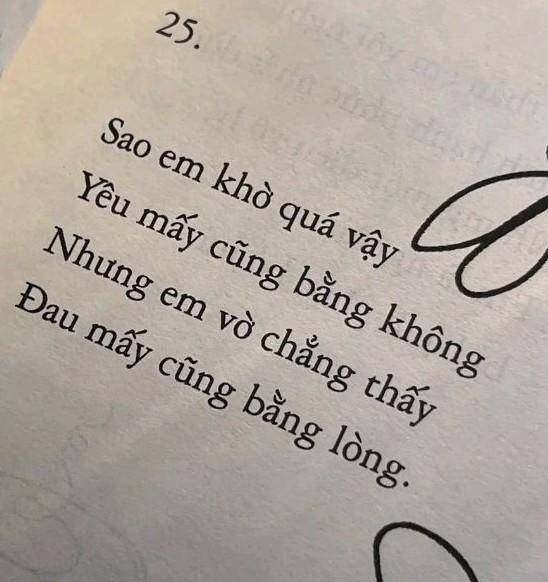 25.
Sao em khờ quá vậy
Yêu mấy cũng bằng không
Nhưng em vờ chẳng thấy
Đau mấy cũng bằng lòng.